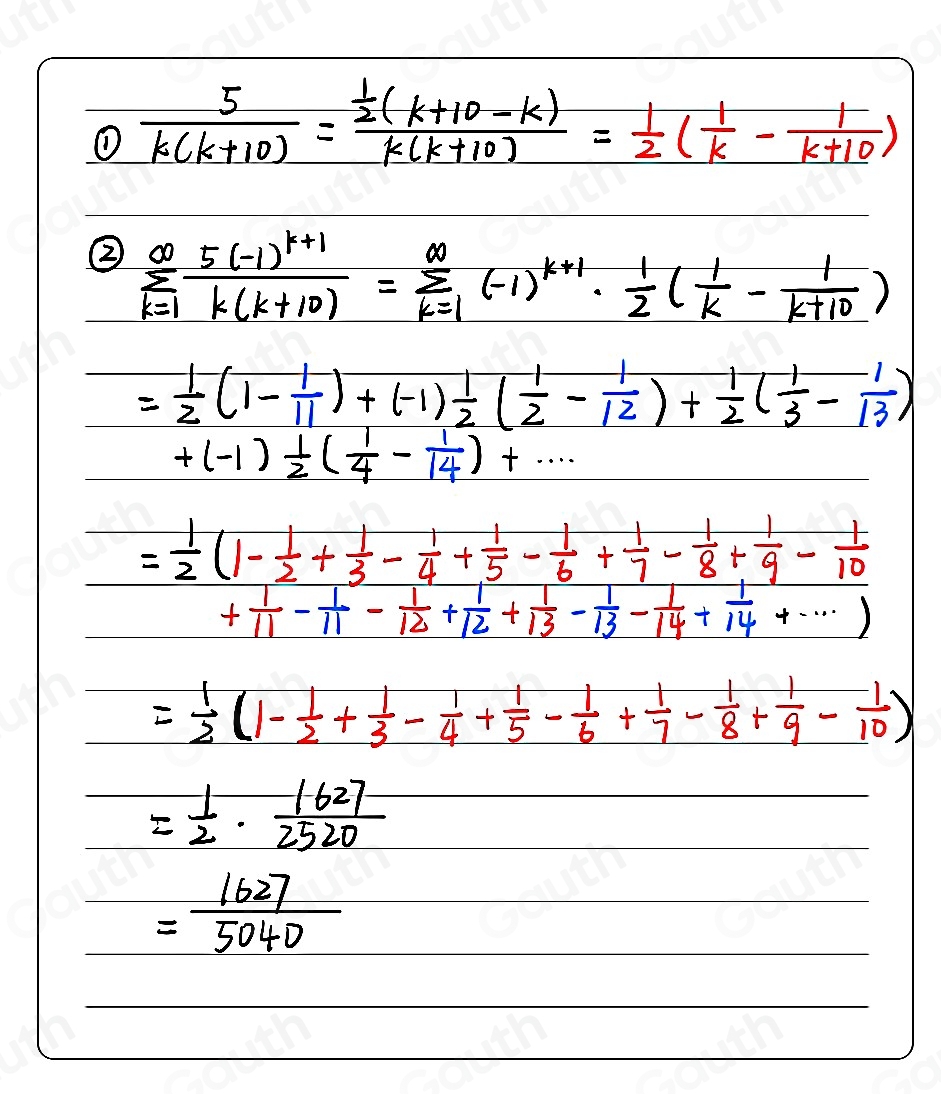 ① 5/(k(k+10)) = (1/2(k+10-k))/(k(k+10)) = 1/2(1/k - 1/(k+10))
② ∑_{k=1}^{∞} 5(-1)^{k+1}/(k(k+10)) = ∑_{k=1}^{∞} (-1)^{k+1} · 1/2(1/k - 1/(k+10))
= 1/2(1 - 1/11) + (-1)1/2(1/2 - 1/12) + 1/2(1/3 - 1/13)
+ (-1)1/2(1/4 - 1/14) + ····
= 1/2(1 - 1/2 + 1/3 - 1/4 + 1/5 - 1/6 + 1/7 - 1/8 + 1/9 - 1/10
+ 1/11 - 1/11 - 1/12 + 1/12 + 1/13 - 1/13 - 1/14 + 1/14 + ····)
= 1/2(1 - 1/2 + 1/3 - 1/4 + 1/5 - 1/6 + 1/7 - 1/8 + 1/9 - 1/10)
= 1/2 · 1627/2520
= 1627/5040